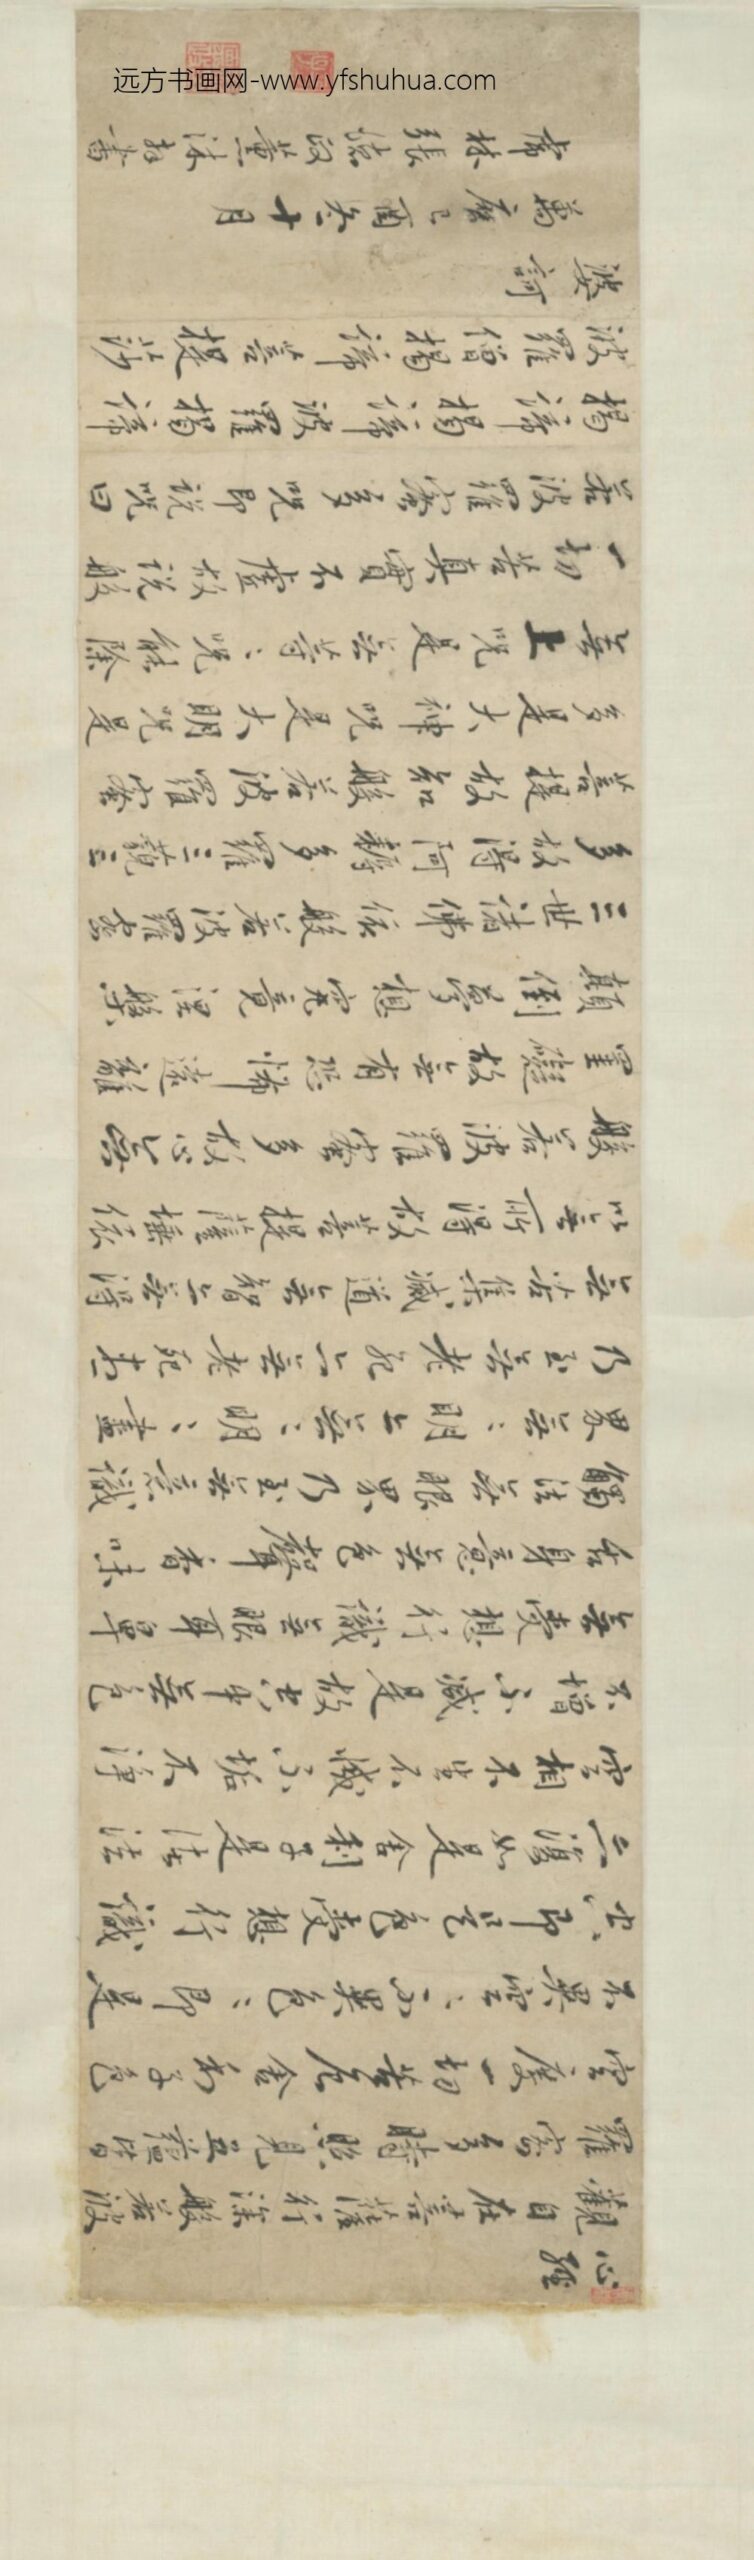 心經
觀自在菩薩行深般若波
羅蜜多時照見五蘊皆
空度一切苦厄舍利子色
不異空、不異色、即是
空、即是色受想行識
亦復如是舍利子是諸法
空相不生不滅不垢不淨
不增不減是故空中無色
無受想行識無眼耳鼻
舌身意無色聲香味
觸法無眼界乃至無意識
界無、明亦無、明、盡
乃至無老死亦無老死盡
無苦集滅道無智亦無得
以無所得故菩提薩埵依
般若波羅蜜多故心無
罣礙故無有恐怖遠離
顛倒夢想究竟涅槃
三世諸佛依般若波羅蜜
多故得阿耨多羅三藐三
菩提故知般若波羅蜜
多是大神咒是大明咒是
無上咒是無等、咒能除
一切苦真實不虛故說般
若波羅蜜多咒即說咒曰
揭諦揭諦波羅揭諦
波羅僧揭諦菩提莎
婆訶
萬曆己酉冬十月
張 書
远方书画网-www.yfshuhua.com